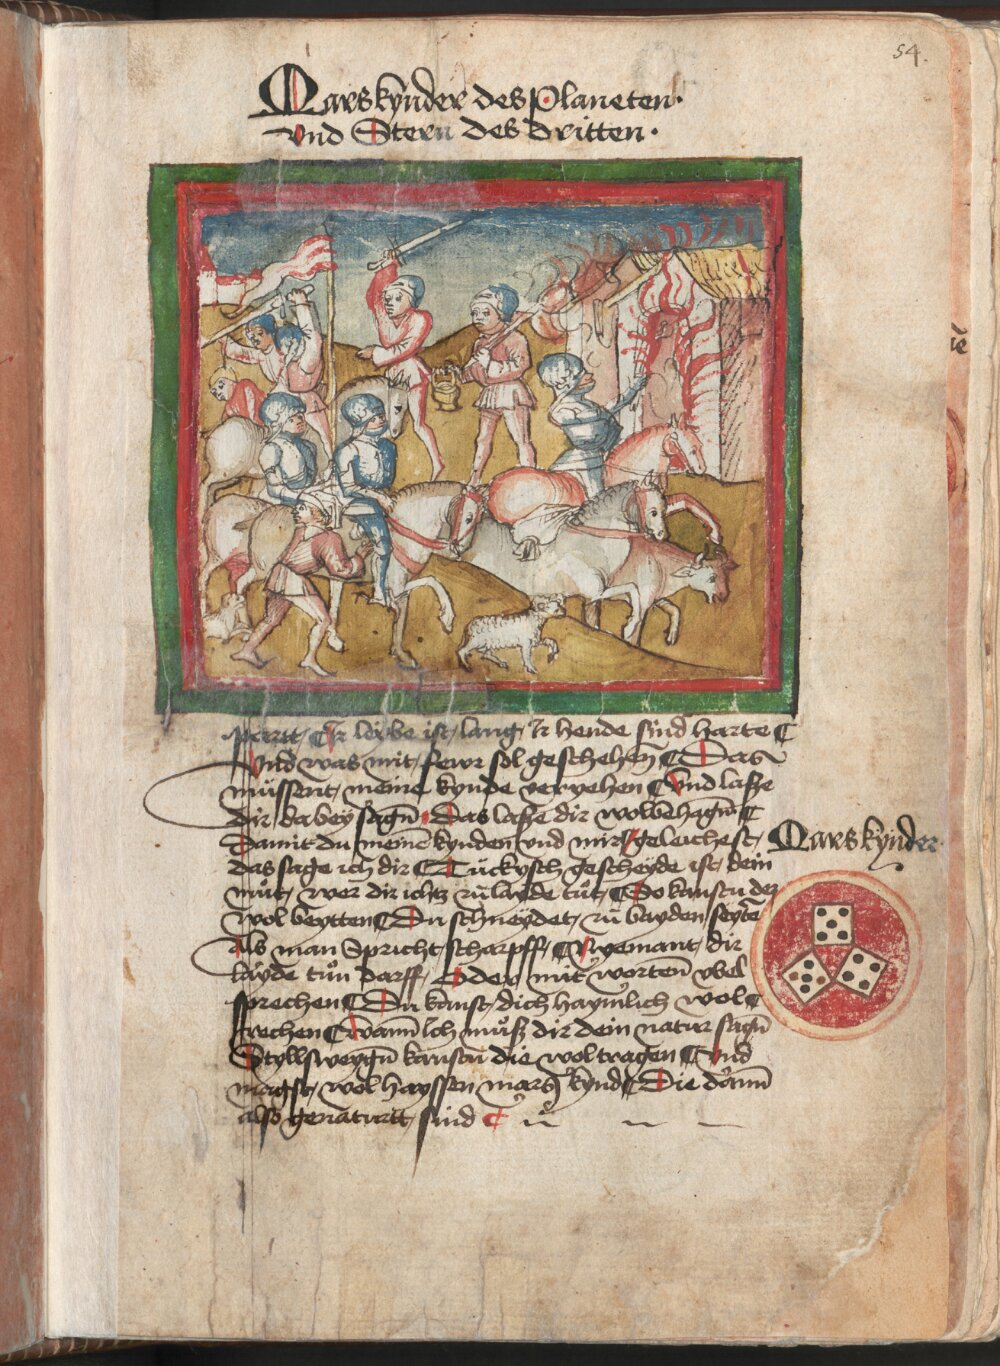 54.
Mars kynder des Planeten.
vnd Stern des dritten.
partt, Ir leybe ist, lang, Ir hende sind harte
Vnd was mit, fewr sol geschehen Das
müssent, meine kynde veryehen Vnd lasse
dir da bey sagn Das lasse dir wol behagn
Damit du meinen kynden vnd mir, geleichest,
das sage ich dir Tückysch gescheyde ist, dein
mut, wer dir ichtz zu layde tut, So kanstu des
wol beytten Du schneydet, zu bayden seyten
Als man Spricht, scharpff, yemant, dir
layde tun darff, Oder mit worten vbel
sprechen Du kanst, dich haymlich wol
rechen wann Ich muß dir dein natur sagn
Styllsweygn kanstu die wol tragen Vnd
magst, wol hayssen mars kynd Die dann
also genaturtt, sind
Mars kynder